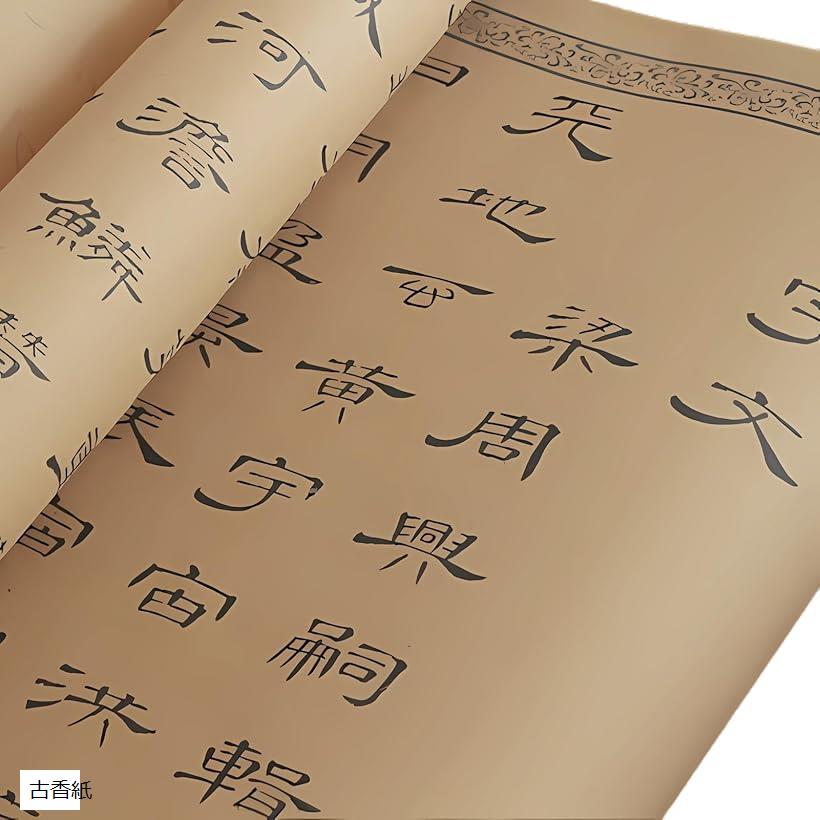 字文
梁周興嗣輯
天地玄黃宇宙洪
日月盈昃辰宿
河澹鱗潛
古香紙